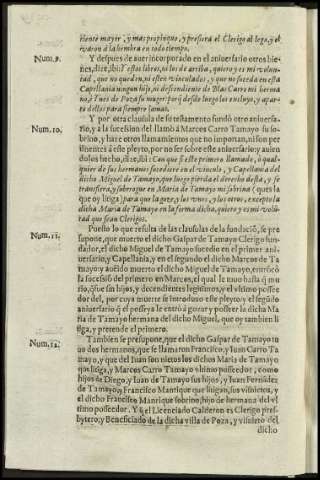 riente mayor, y mas propinquo, y prefiera el Clerigo al lego, y el
varon a la hembra en todo tiempo.
Num. 9.
Y despues de auer incorporado en el aniversario otros bie-
nes, dize, ibi: Y estos libres, ni los de arriba, quiero y es mi volun-
tad, que no queden, ni esten vinculados, y que no suceda en esta
Capellania ningun hijo, ni descendiente de Blas Carro mi herma
no, è Ynes de Poza su muger: por q̃ desde luego los excluyo, y apar-
to dellos para siempre jamas.
Num. 10.
Y por otra clausula de su testamento fundò otro aniversa-
rio, y a la sucession del llamò à Marcos Carro Tamayo su so-
brino, y haze otros llamamientos que no importan, ni son per
tinentes à este pleyto, por no ser sobre este aniversario: y auien
dolos hecho, dize, ibi: Con que si este primero llamado, ò qual-
quier de sus hermanos sucediere en el vinculo, y Capellania del
dicho Miguel de Tamayo, que luego pierda el derecho desta, y se
transfiera, y subrogue en Maria de Tamayo mi sobrina (ques la
que oy litiga) para que la goze, y los vnos, y los otros, excepto la
dicha Maria de Tamayo en la forma dicha, quiero y es mi volun
tad que sean Clerigos.
Num. 11.
Puesto lo que resulta de las clausulas de la fundaciõ, se pre
supone, que muerto el dicho Gaspar de Tamayo Clerigo fun-
dador, el dicho Miguel de Tamayo sucedio en el primer ani-
versario, y Capellania, y en el segundo el dicho Marcos de Ta-
mayo y auiẽdo muerto el dicho Miguel de Tamayo, entrò cõ
la successiõ del primero en Marcos, el qual le tuuo hasta q̃ mu
rio, q̃ fue sin hijos, y decendientes legitimos, y el vltimo posee
dor del, por cuya muerte se introduxo este pleyto: y el segũdo
aniversario q̃ el posseya le entrò à gozar y posseer la dicha Ma
ria de Tamayo hermana del dicho Miguel, que oy tambien li
tiga, y pretende el primero.
Num. 12.
Tambien se presupone, que el dicho Gaspar de Tamayo tu
uo dos hermanos, que se llamaron Francisco, y Iuan Carro Ta
mayo, y que del Iuan son nietos los dichos Maria de Tamayo
que litiga, y Marcos Carro Tamayo vltimo posseedor, como
hijos de Diego, y Iuan de Tamayo sus hijos, y Iuan Fernandez
de Tamayo, y Francisco Manrique que litigan, sus visnietos, y
el dicho Francisco Manrique sobrino, hijo de hermana del vl
timo posseedor. Y q̃ el Licenciado Calderon es Clerigo pres-
bytero, y Beneficiado de la dicha villa de Poza, y visnieto del
dicho